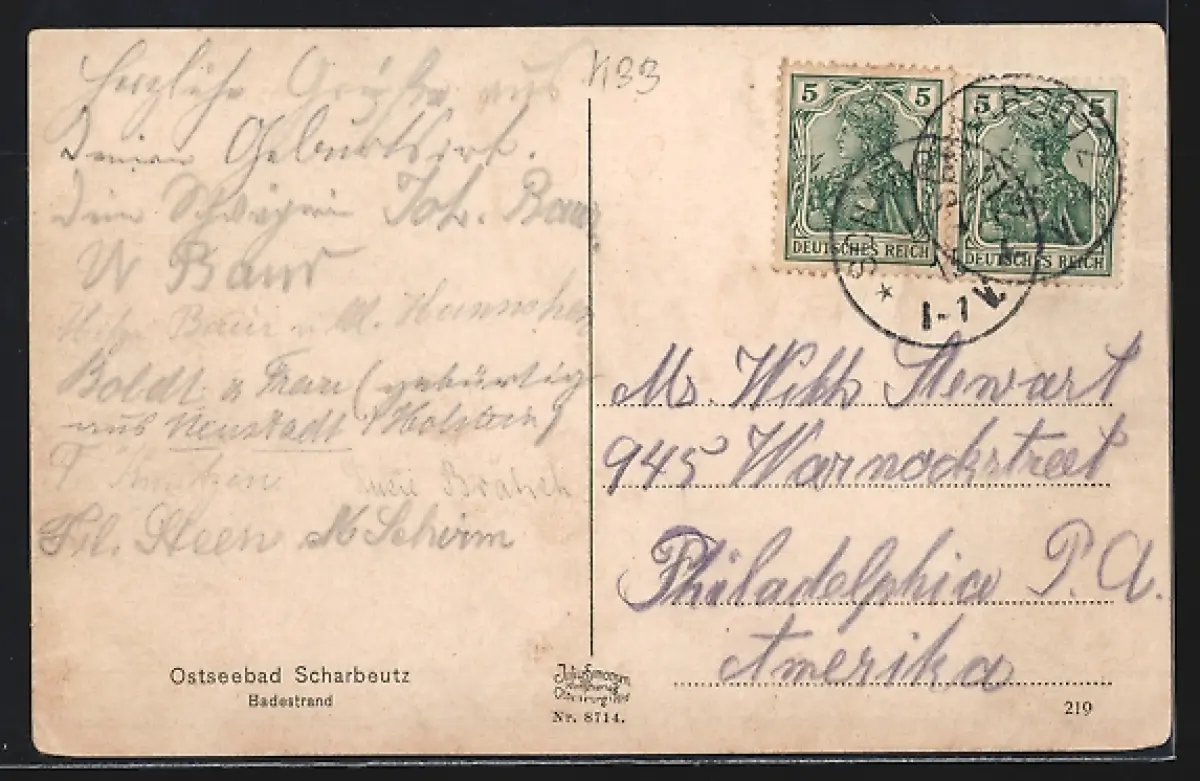 Herzliche Grüße aus
Deinem Geburtsort.
Dein Schwager Joh. Baur
W Baur
Baur u. M.
Boldt u Frau (gebürtig
aus Neustadt (Holstein)
Lucie
Frl. Steen M Schirm
K33
5 5
DEUTSCHES REICH
5 5
DEUTSCHES REICH
SCHARBEUTZ
1-1 V.
Mr. Wilh Stewart
945 Warnockstreet
Philadelphia P. A.
Amerika
Ostseebad Scharbeutz
Badestrand
Nr. 8714.
219